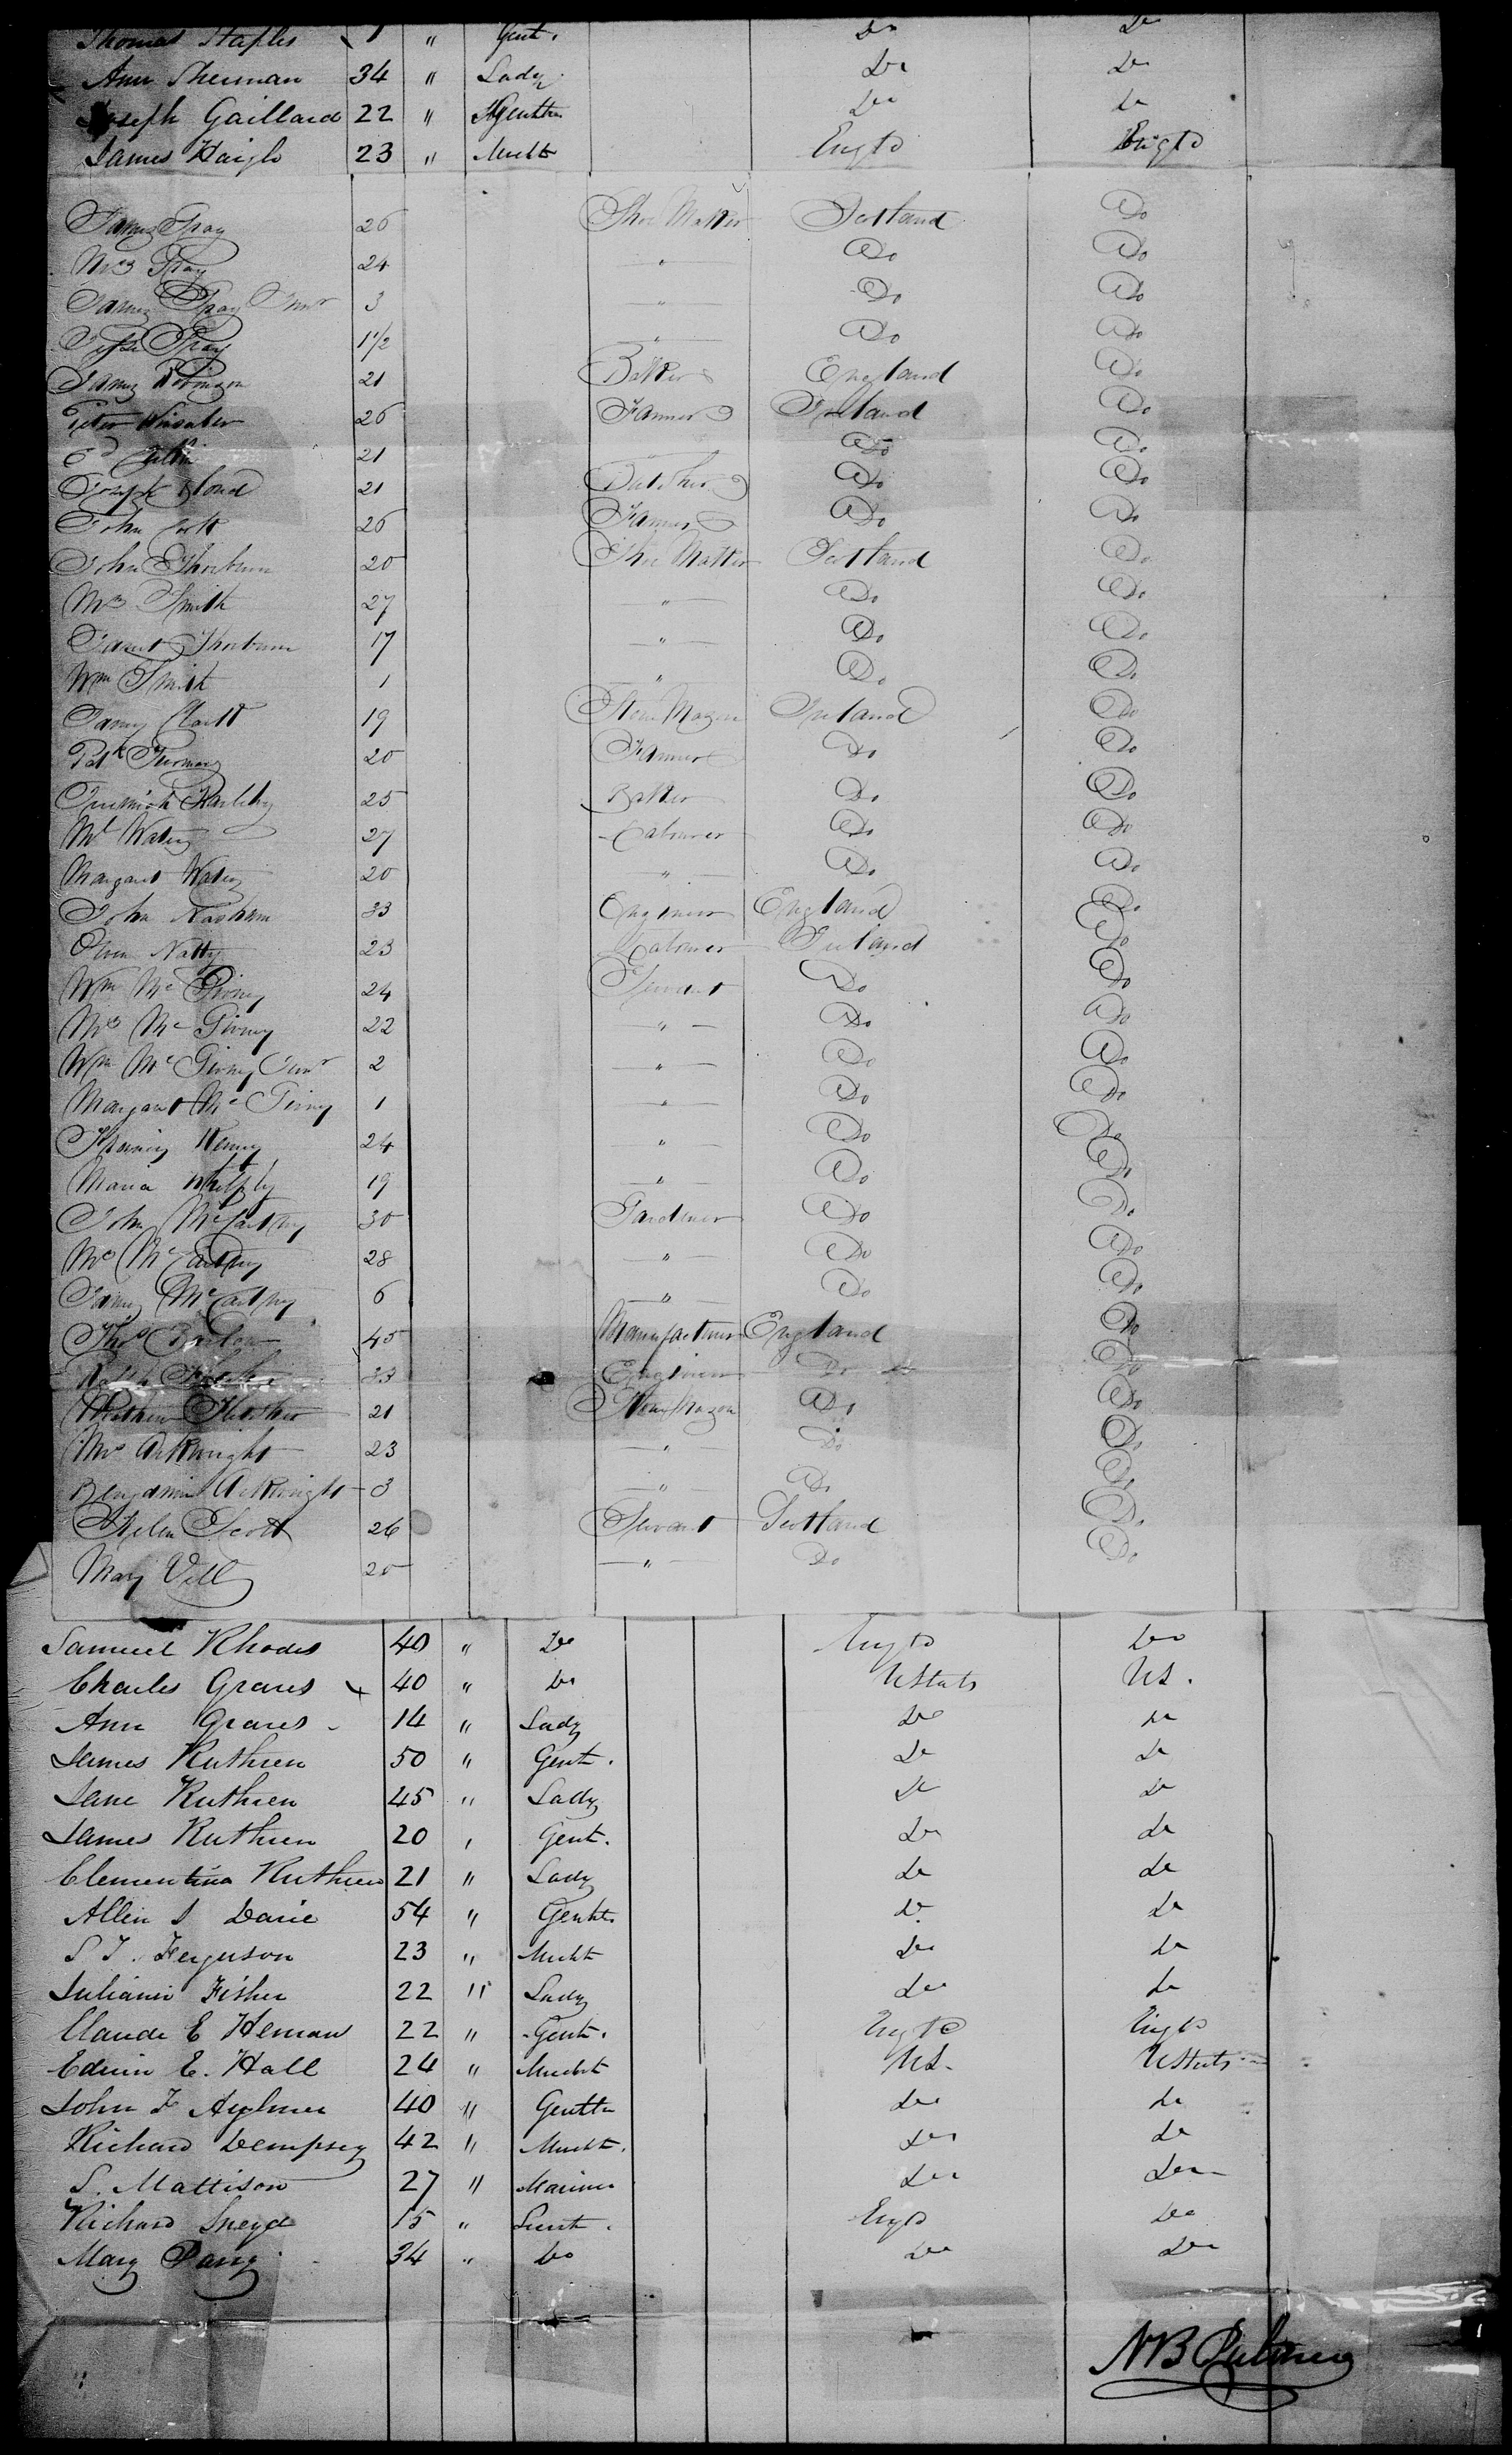 Thomas Staples " Gent. Do Do
Ann Sherman 34 " Lady Do Do
Joseph Gaillard 22 " Do Do
James Haigh 23 " Mercht Engld Engld
James Gray 26 Shoe Maker Scotland Do
Mrs Gray 24 " Do Do
James Gray Junr 3 " Do Do
Jessie Gray 1 1/2 " Do Do
James Robinson 21 Baker England Do
Peter 26 Farmer Ireland Do
21 Do Do
Joseph Bloud 21 Butcher Do Do
John 26 Farmer Do Do
John Thorburn 20 Shoe Maker Scotland Do
Mrs Smith 27 " Do Do
Janet Thorburn 17 " Do Do
Wm Smith 1 " Do Do
James Clark 19 Stone Mason Ireland Do
Patk 20 Farmer Do Do
Jeremiah 25 Baker Do Do
Ml Waters 27 Labourer Do Do
Margaret Waters 20 " Do Do
John 33 Engineer England Do
Owen Natty 23 Labourer Ireland Do
Wm Mc Givney 24 Servant Do Do
Mrs Mc Givney 22 " Do Do
Wm Mc Givney Junr 2 " Do Do
Margaret Mc Givney 1 " Do Do
Henny 24 " Do Do
Maria Whelply 19 " Do Do
John McCarthy 30 Gardener Do Do
Mrs McCarthy 28 " Do Do
James McCarthy 6 " Do Do
Thos Barlow 45 Manufacturer England Do
Ralph 33 Engineer Do Do
Fletcher 21 Stone Mason Do Do
Mrs Arkwright 23 " Do Do
Benjamin Arkwright 3 " Do Do
Helen Scott 26 Servant Scotland Do
Mary Vell 20 " Do Do
Samuel Rhodes 40 " Do Engld Do
Charles Graves 40 " Do UStates US.
Ann Graves 14 " Lady Do Do
James Ruthven 50 " Gent. Do Do
Jane Ruthven 45 " Lady Do Do
James Ruthven 20 " Gent. Do Do
Clementina Ruthven 21 " Lady Do Do
Allen S Davie 54 " Gentn Do Do
S T. Ferguson 23 " Mercht Do Do
Juliann Fisher 22 " Lady Do Do
Claude E Heman 22 " Gent. Engld Engld
Edwin E. Hall 24 " Mercht US. UStates
John F Aylmer 40 " Gentn Do Do
Richard Dempsey 42 " Mercht. Do Do
S. Mattison 27 " Mariner Do Do
Richard Sneyd 15 " Servt. Engld Do
Mary Parry 34 " Do Do Do
NB Palmer